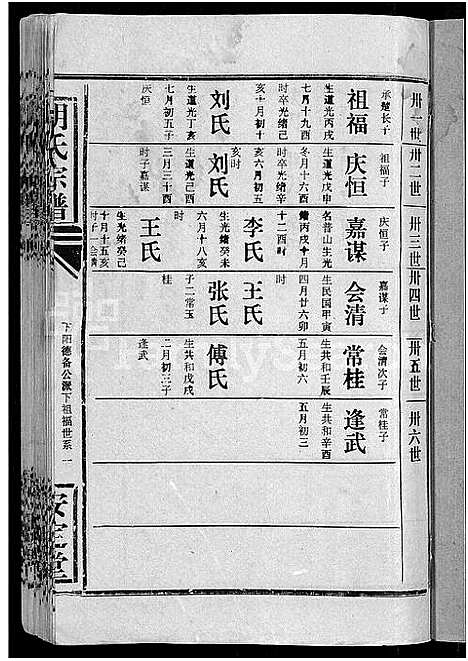 卅一世 卅二世 卅三世 卅四世 卅五世 卅六世
承楚长子
祖福
生道光丙戌
七月十九酉
时卒光绪己
亥十二月初十
亥时
刘氏
生道光丁亥
七月初五子
时
庆恒
祖福子
庆恒
生道光戊申
冬月十六戌
时卒光绪辛
亥六月初五
亥时
刘氏
生道光庚戌
三月三十酉
时子嘉谋
庆恒子
嘉谋
名普山生光
绪丙戌十月
十二酉时
李氏
生光绪癸未
六月十八亥
时
王氏
生光绪癸己
十月十五亥
时子一会清
嘉谋子
会清
生民国甲寅
四月廿六卯
时
王氏
张氏
子二常玉
桂
会清次子
常桂
生共和壬辰
五月初六
傅氏
生共和戊戌
二月初三子
逢武
常桂子
逢武
生共和辛酉
五月初三
胡氏宗谱
下阳德备公派下祖福世系 一
安定堂